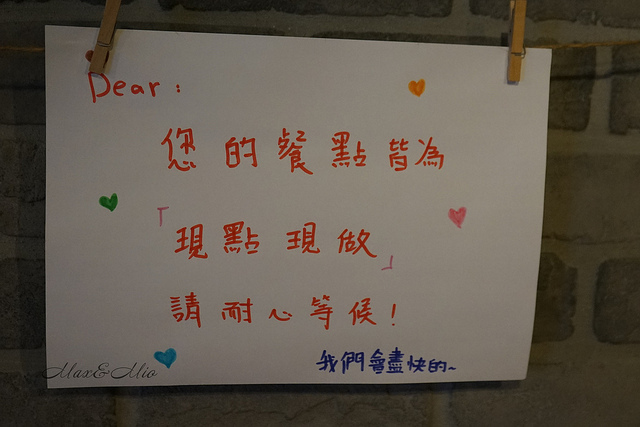 Dear :
您的餐點皆為
「現點現做」
請耐心等候!
我們會盡快的~
Max&Mio